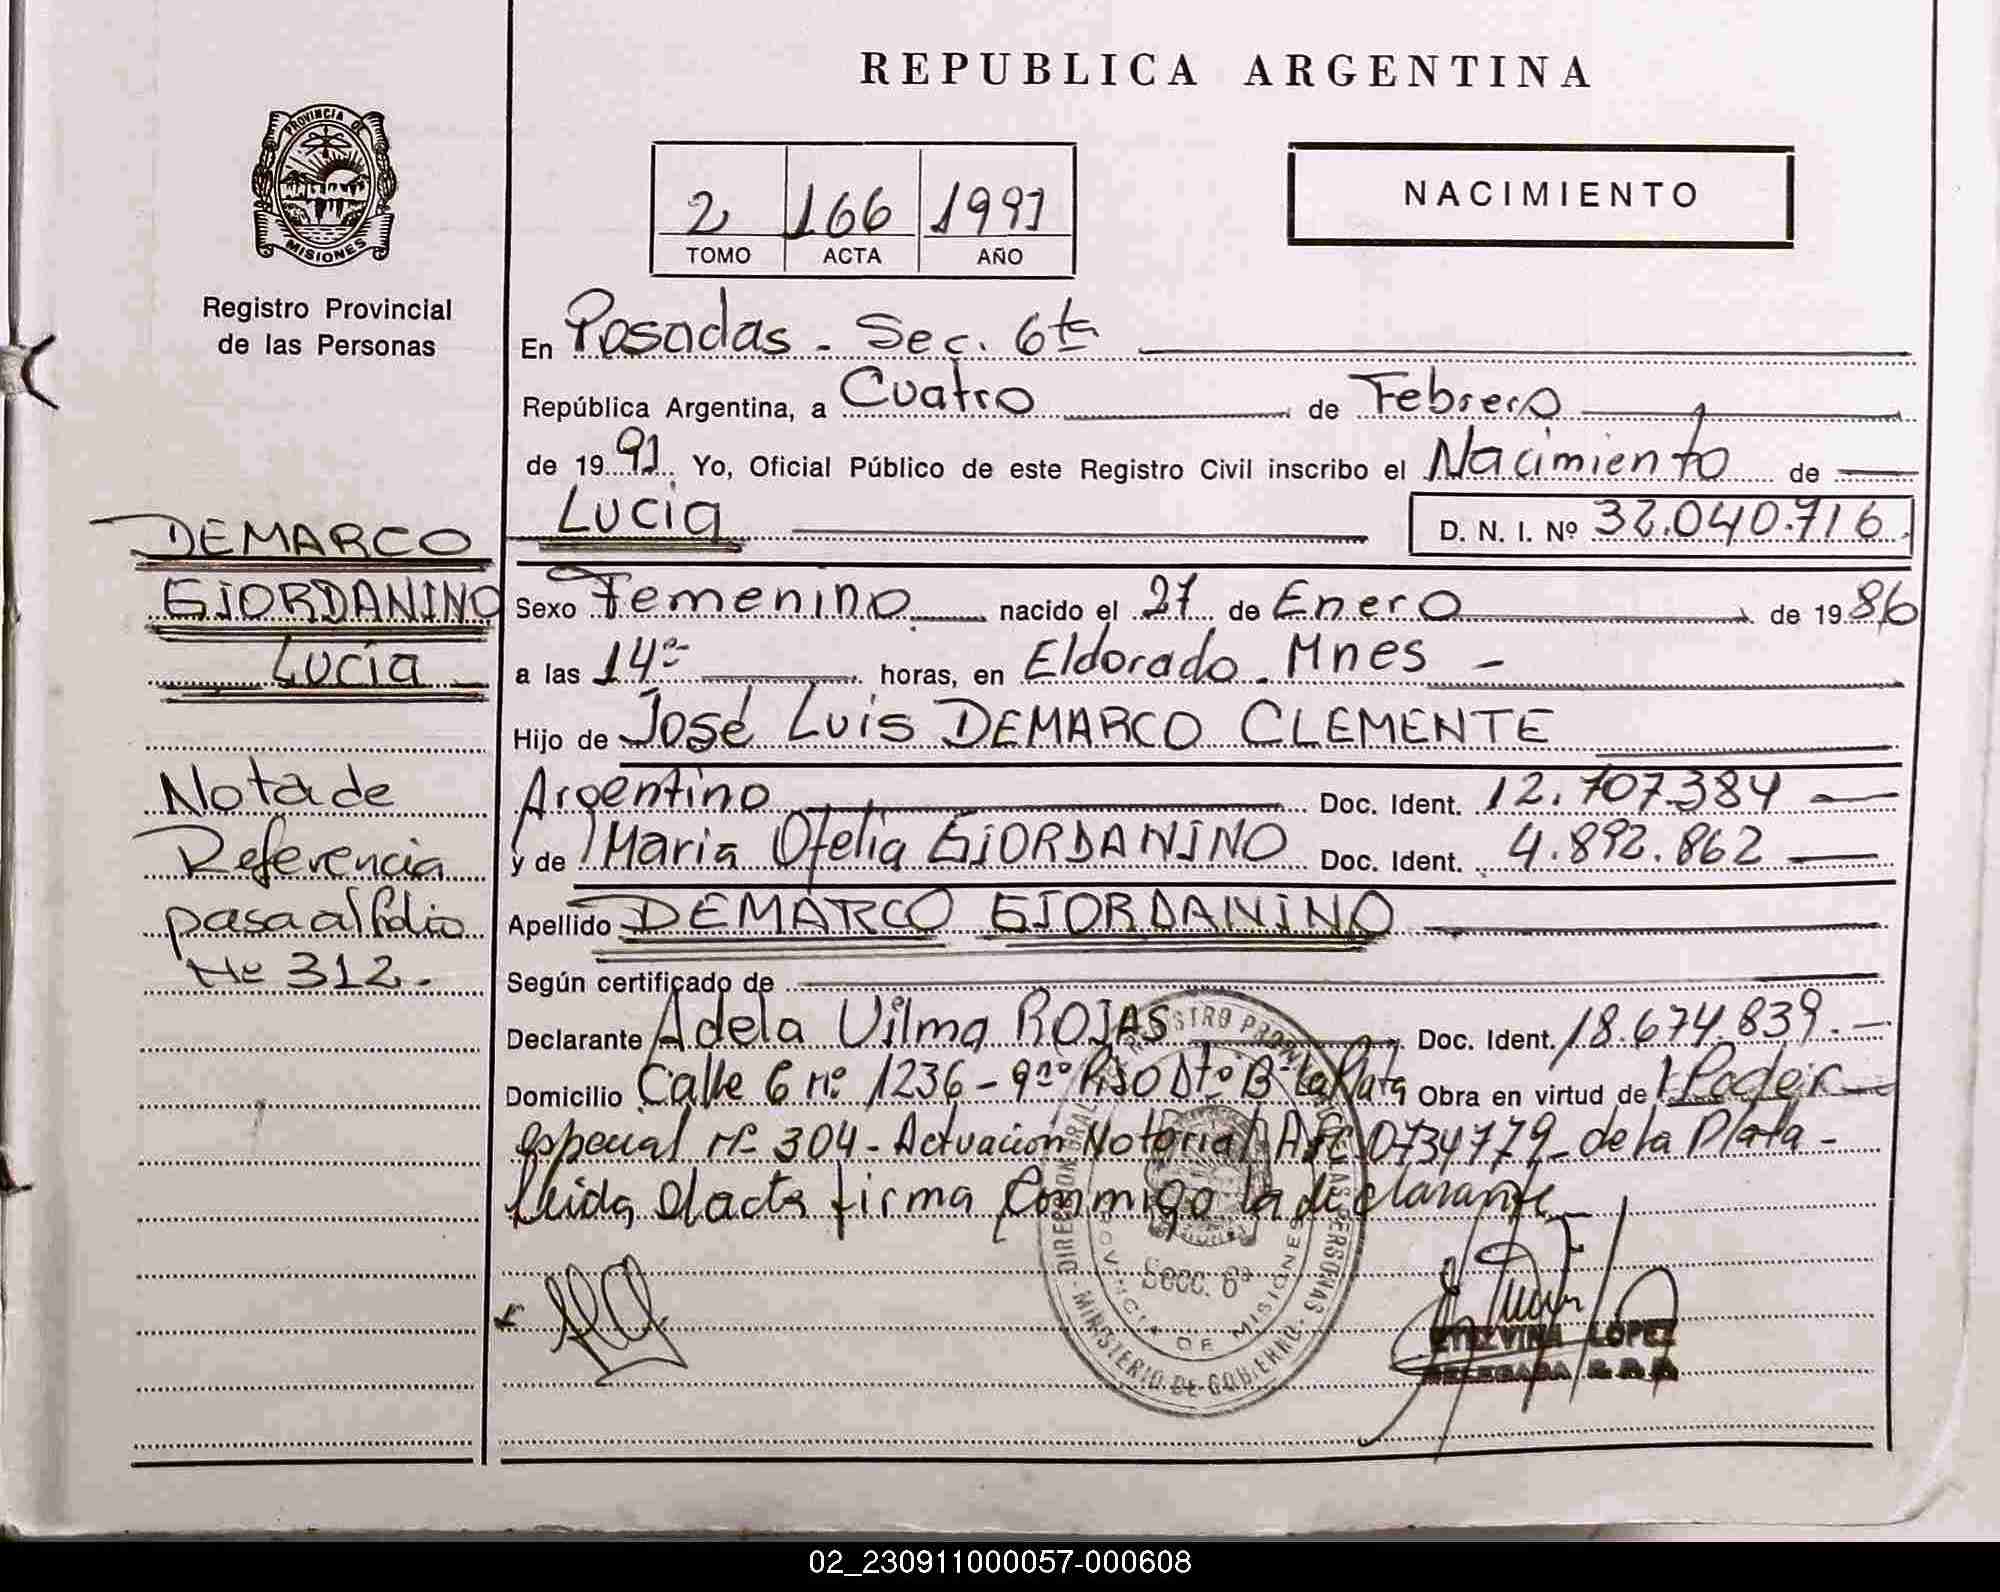 REPUBLICA ARGENTINA
PROVINCIA DE
MISIONES
Registro Provincial
de las Personas
2 166 1991
TOMO ACTA AÑO
NACIMIENTO
En Posadas - Sec. 6ta
República Argentina, a Cuatro de Febrero
de 1991 Yo, Oficial Público de este Registro Civil inscribo el Nacimiento de
Lucia D. N. I. Nº 32.040.716
Sexo Femenino nacido el 27 de Enero de 1986
a las 14 horas, en Eldorado - Mnes -
Hijo de José Luis DEMARCO CLEMENTE
Argentino Doc. Ident. 12.707.384
y de Maria Ofelia GIORDANINO Doc. Ident. 4.892.862
Apellido DEMARCO GIORDANINO
Según certificado de
Declarante Adela Vilma ROJAS Doc. Ident. 18.674.839.-
Domicilio Calle 6 nº 1236 - 9no Piso Dto B - La Plata Obra en virtud de Poder
especial nº 304 - Actuación Notarial 0734779 - de la Plata -
Leida el acta firma conmigo la declarante
DEMARCO
GIORDANINO
Lucía
Nota de
Referencia
pasa al folio
Nº 312.-
Secc. 6ª
PROVINCIA DE MISIONES
MINISTERIO DE GOBIERNO
ETELVINA LOPEZ
DELEGADA
02_230911000057-000608